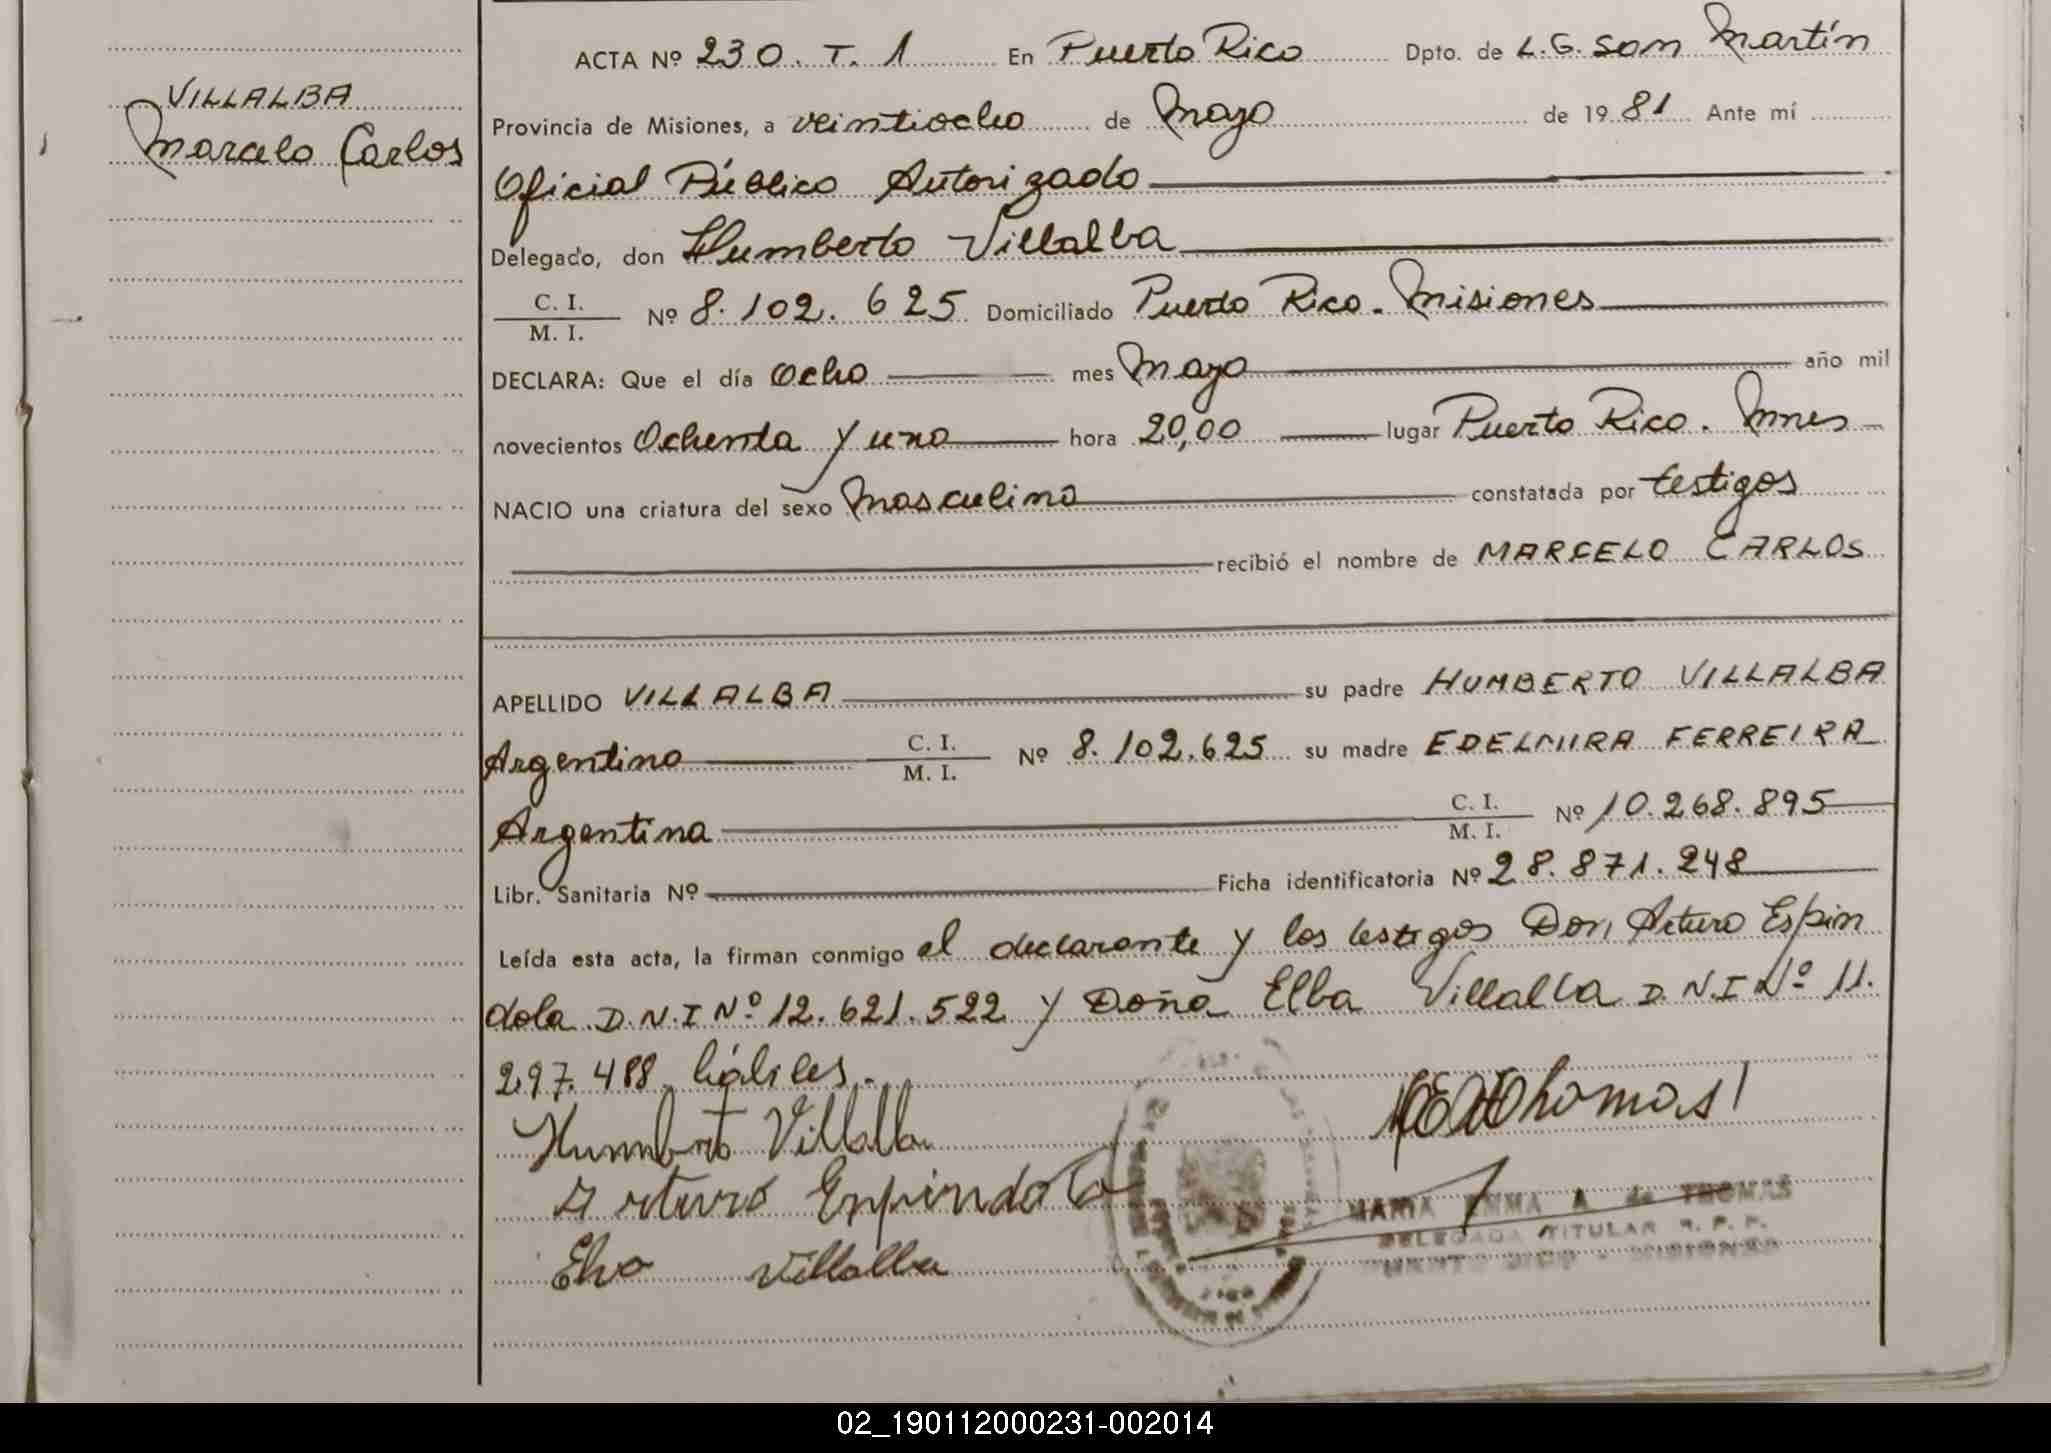 VILLALBA
Marcelo Carlos
ACTA Nº 230. T. 1 En Puerto Rico Dpto. de L.G. San Martín
Provincia de Misiones, a veintiocho de Mayo de 1981 Ante mí
Oficial Público Autorizado
Delegado, don Humberto Villalba
C. I.
M. I. Nº 8.102.625 Domiciliado Puerto Rico. Misiones
DECLARA: Que el día Ocho mes Mayo año mil
novecientos Ochenta y uno hora 20,00 lugar Puerto Rico. Mnes
NACIO una criatura del sexo Masculino constatada por testigos
recibió el nombre de MARCELO CARLOS
APELLIDO VILLALBA su padre HUMBERTO VILLALBA
Argentino C. I.
M. I. Nº 8.102.625 su madre EDELMIRA FERREIRA
Argentina C. I.
M. I. Nº 10.268.895
Libr. Sanitaria Nº Ficha identificatoria Nº 28.871.248
Leída esta acta, la firman conmigo el declarante y los testigos Don Arturo Espin
dola D.N.I Nº 12.621.522 y Doña Elba Villalba D.N.I Nº 11.
297.488 hábiles.
Humberto Villalba
Arturo Espindola
Elva Villalba
MARIA EMMA A. de THOMAS
DELEGADA TITULAR R. P. P.
PUERTO RICO - MISIONES
02_190112000231-002014